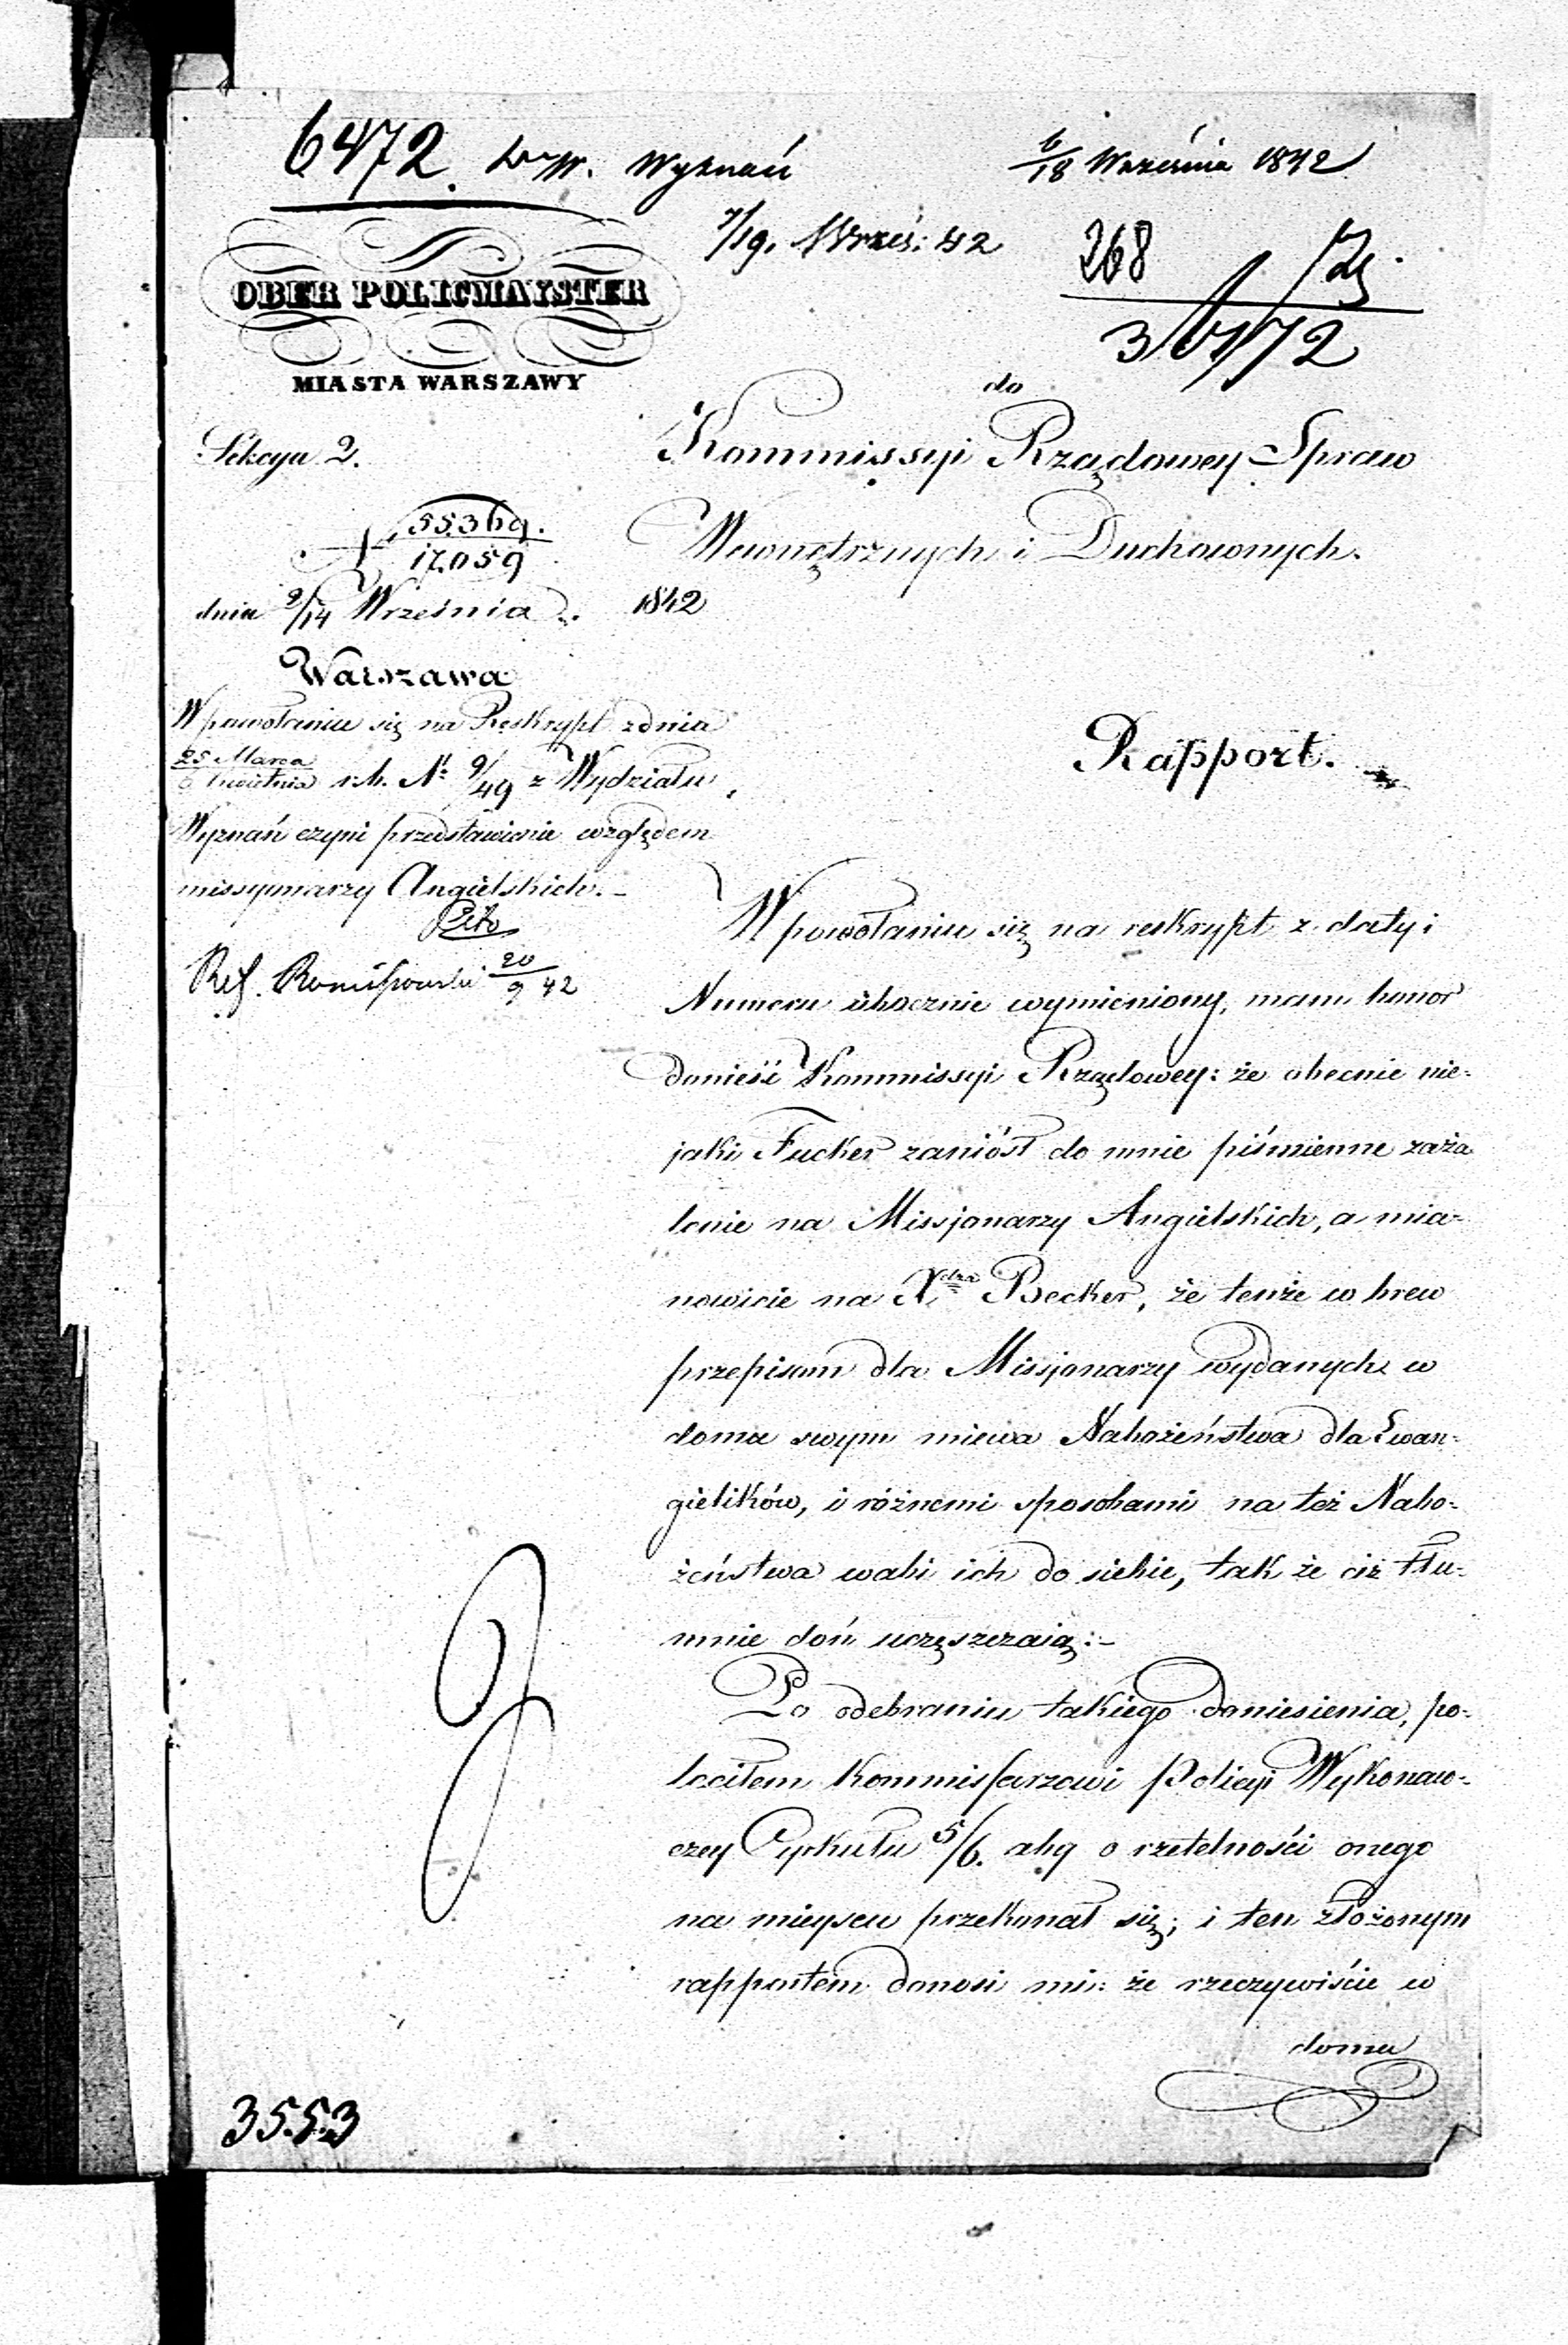 6472. Wyznań
6/18 Września 1842
7/19. Wrześ: 42
268
OBER POLICMAYSTER
MIASTA WARSZAWY
do
Sekcya 2.
Kommissyi Rządowey Spraw
Wewnętrznych i Duchownych.
N. 55369.
17.059
dnia 2/14 Września 1842
Warszawa
W powołaniu się na Reskrypt z dnia
25 Marca
6 kwietnia r.b. Nr 9/49 z Wydziału
Wyznań czyni przedstawienie względem
missyonarzy Angielskich.-
Ref. 20/9 42
Rapport.
W powołaniu się na reskrypt z daty i
Numeru ubocznie wymieniony, mam honor
donieść Kommissyi Rządowey: że obecnie nie-
jaki Fucker zaniósł do mnie piśmienne zaża
lenie na Missjonarzy Angielskich, a mia-
nowicie na Xdza Becker, że tenże w brew
przepisom dla Missjonarzy wydanych w
domu swym miewa Nabożeństwa dla Ewan-
gielików, i różnemi sposobami na też Nabo-
żeństwa wabi ich do siebie, tak że ciż tłu-
mnie doń uczęszczaią:-
Po odebraniu takiego doniesienia, po-
leciłem Kommissarzowi Policyi Wykonaw-
czey Cyrkułu 5/6. aby o rzetelności onego
na mieyscu przekonał się; i ten złożonym
rapportem donosi mi: że rzeczywiście w
domu
3553